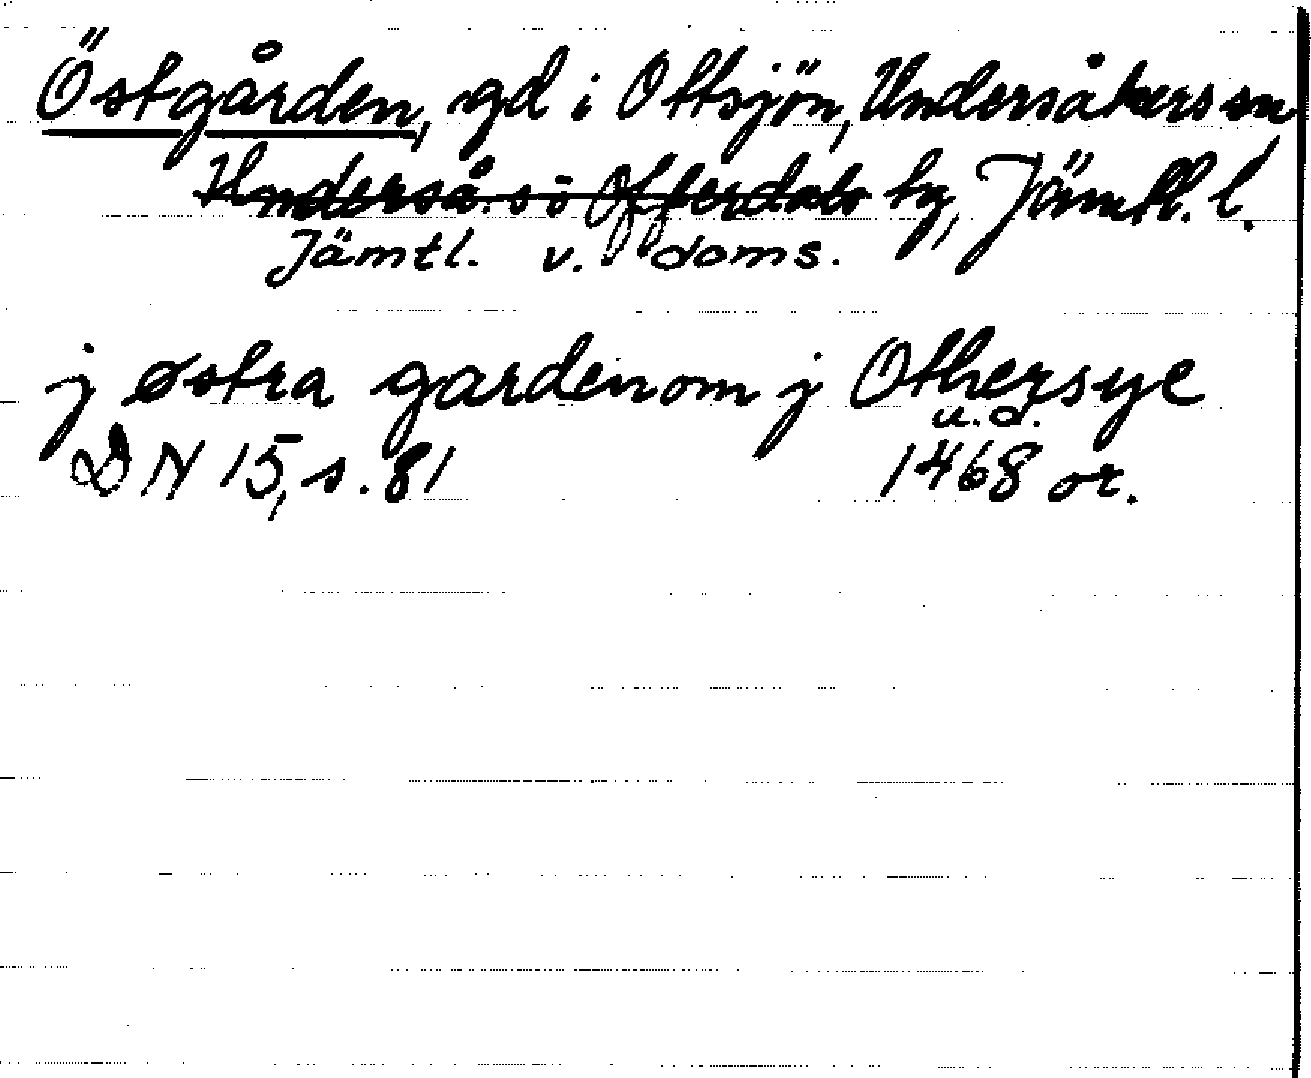 Östgården, gd i Ottsjön, Undersåkers sn,
Underså. s o Offerdals hg, Jämtl. l.
Jämtl. v. doms.
j østra gardenom j Othersye
u.d.
DN 15, s. 81 1468 or.